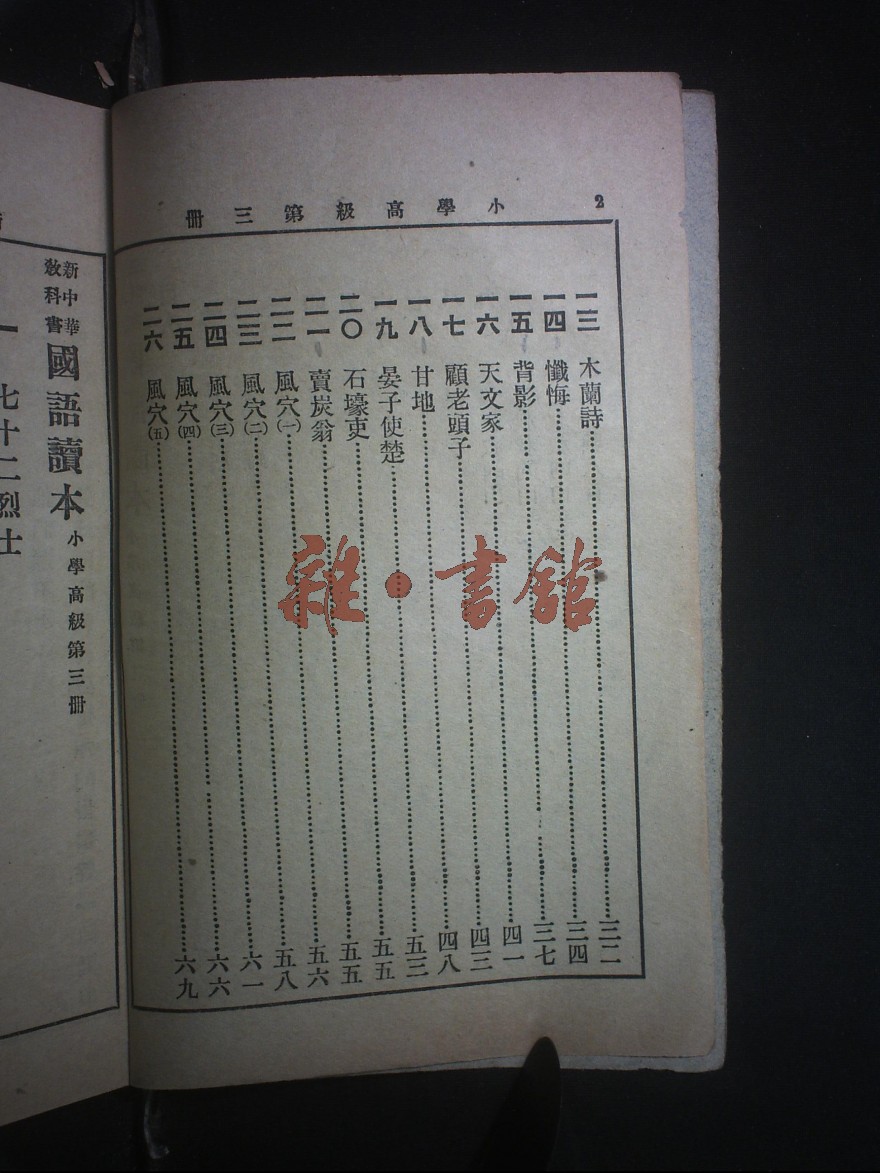 2 小學高級第三冊
一三 木蘭詩……三二
一四 懺悔……三四
一五 背影……三七
一六 天文家……四一
一七 顧老頭子……四三
一八 甘地……四八
一九 晏子使楚……五三
二〇 石壕吏……五五
二一 賣炭翁……五五
二二 風穴(一)……五六
二三 風穴(二)……五八
二四 風穴(三)……六一
二五 風穴(四)……六六
二六 風穴(五)……六九
雜·書館
新中華教科書 國語讀本 小學高級第三冊
一 七十二烈士